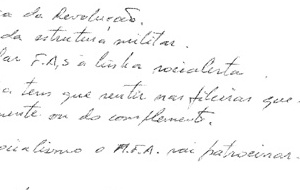 da Revolução.
da estrutura militar.
F.A,s à linha socialista
a tem que sentir nas fileiras que
ou do complemento.
socialismo o M.F.A. vai patrocinar